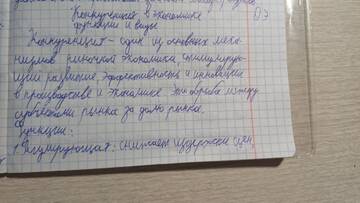 Конкуренция в экономике
функции и виды
Конкуренция - один из основных меха-
низмов рыночной экономики, стимулирую-
щий развитие, эффективность и инновации
в производстве и экономике это борьба между
субъектами рынка за долю рынка.
Функции:
1. Регулирующая: снижает издержки цен,